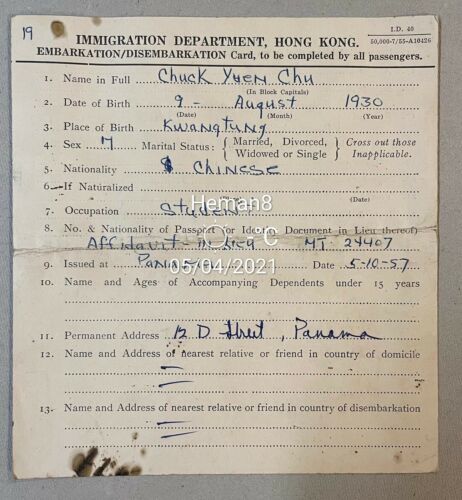 19
I.D. 40
50,000-7/55-A10426
IMMIGRATION DEPARTMENT, HONG KONG.
EMBARKATION/DISEMBARKATION Card, to be completed by all passengers.
1. Name in Full Chuck Yuen Chu
(In Block Capitals)
2. Date of Birth 9 - August 1930
(Date) (Month) (Year)
3. Place of Birth Kwangtung
4. Sex M Marital Status: { Married, Divorced, Widowed or Single } Cross out those Inapplicable.
5. Nationality CHINESE
6. If Naturalized
(Date)
7. Occupation Student
8. No. & Nationality of Passport (or Identity Document in Lieu thereof)
Affidavit - in Lieu MT. 24407
9. Issued at Panama Date 5-10-57
10. Name and Ages of Accompanying Dependents under 15 years
11. Permanent Address 12 D Street, Panama
12. Name and Address of nearest relative or friend in country of domicile
13. Name and Address of nearest relative or friend in country of disembarkation
Heman8
C
05/04/2021